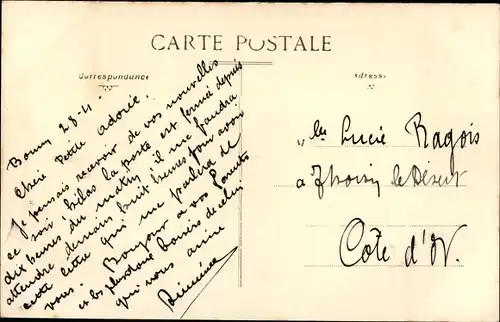 CARTE POSTALE
Correspondance
Adresse
2-8-11.
Chère Petite adorée.
Je pensais recevoir de vos nouvelles
ce soir, hélas la poste est fermée depuis
dix heures du matin, il me faudra
attendre demain huit heures pour avoir
cette lettre qui me parlera de
vous. Bonjour à vos Parents
et les plus doux baisers de celui
qui vous aime
Lucie Ragois
à Thoisy le Désert
Côte d'Or.